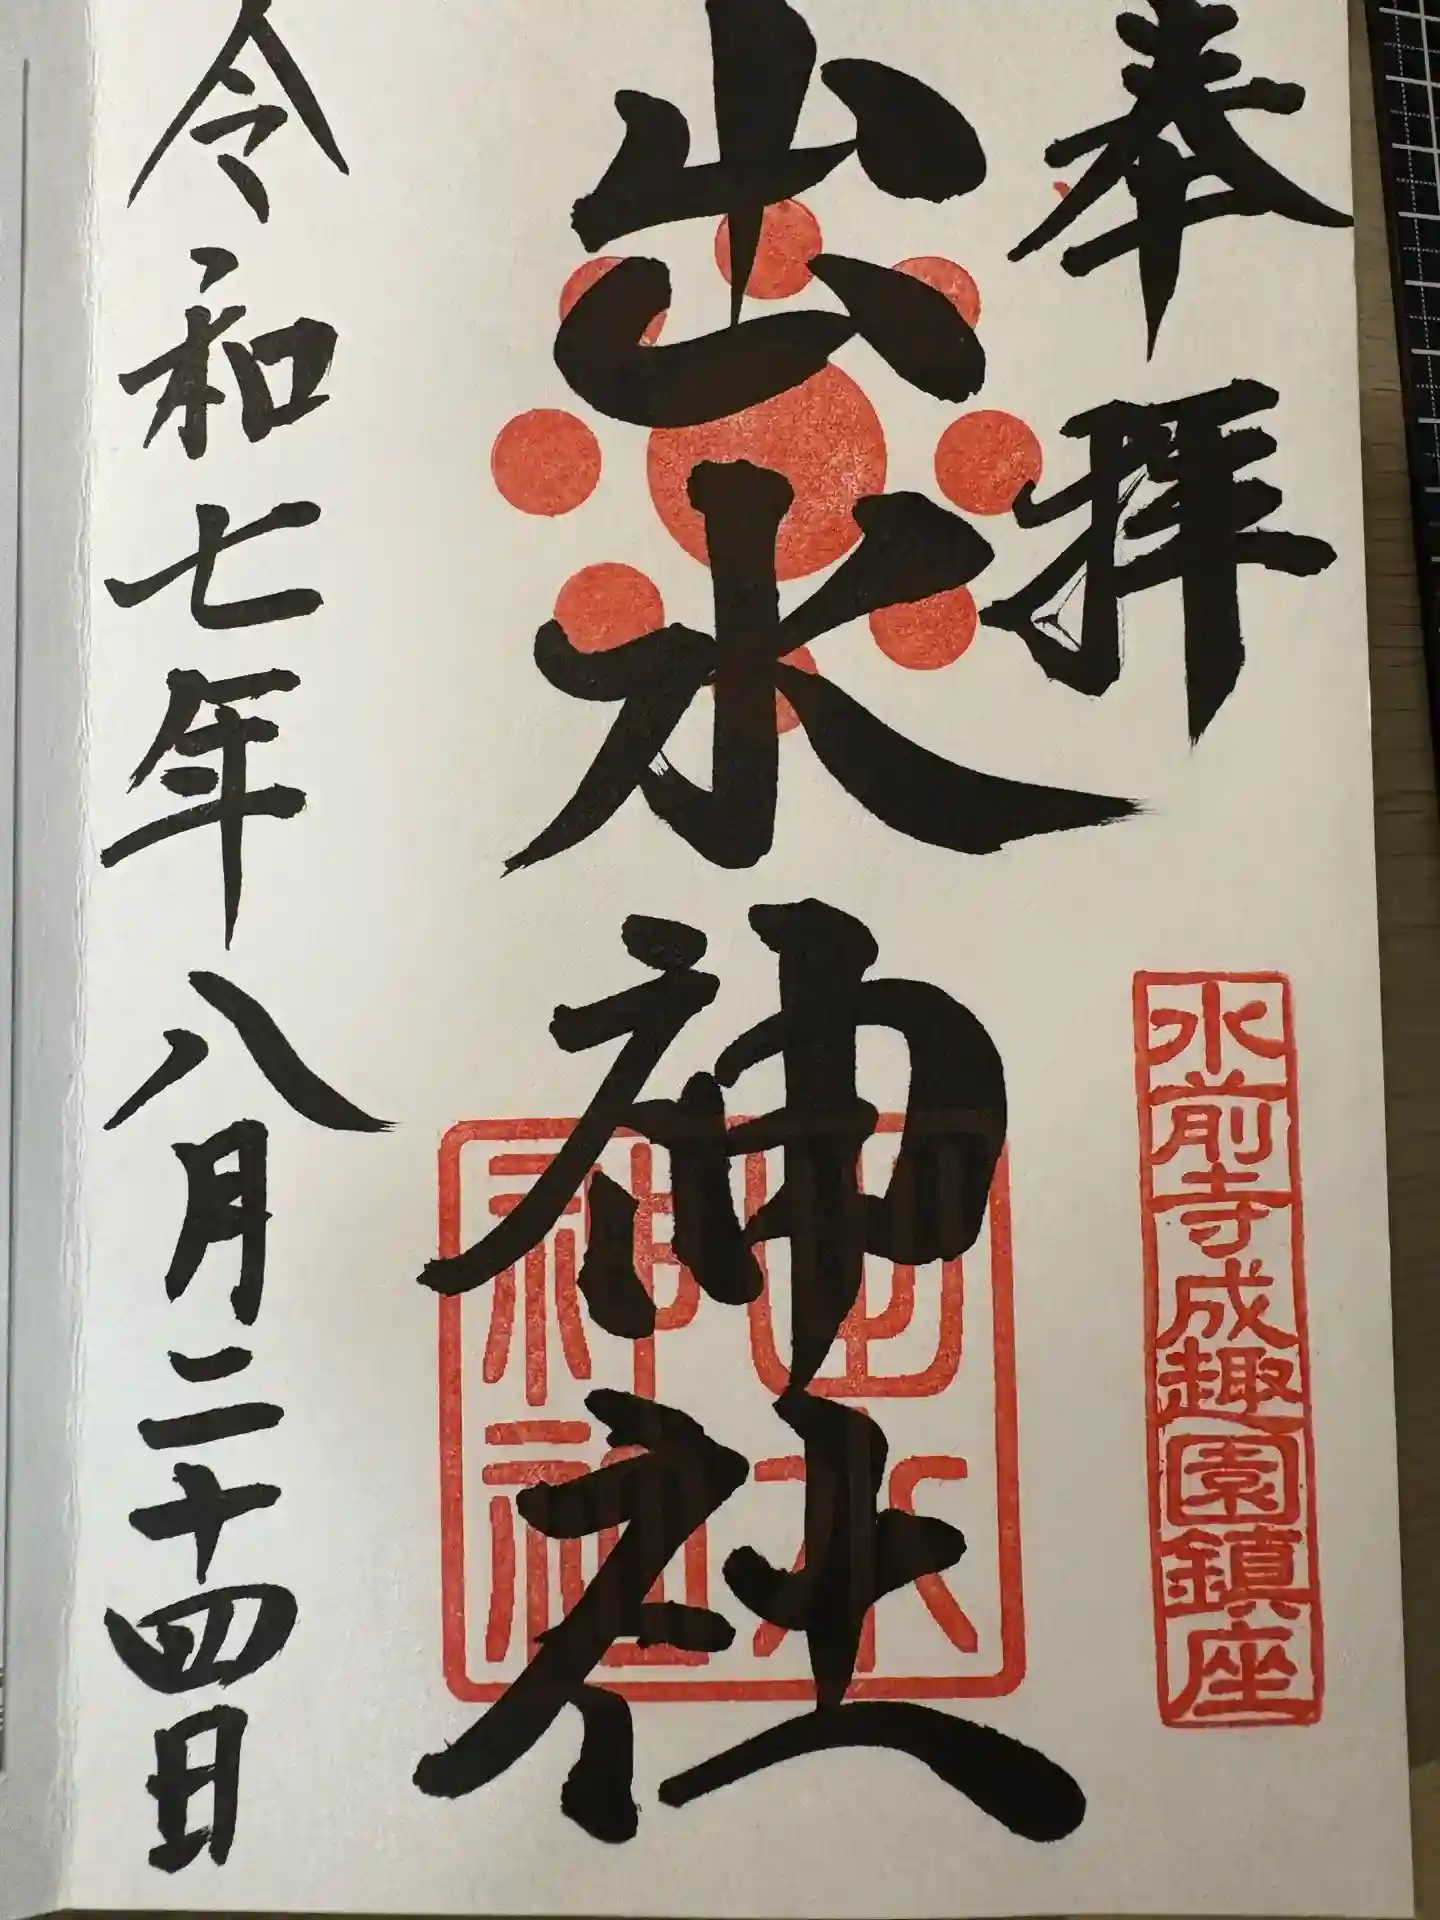 奉拝
水前寺成趣園鎮座
出水神社
出水神社
令和七年八月二十四日